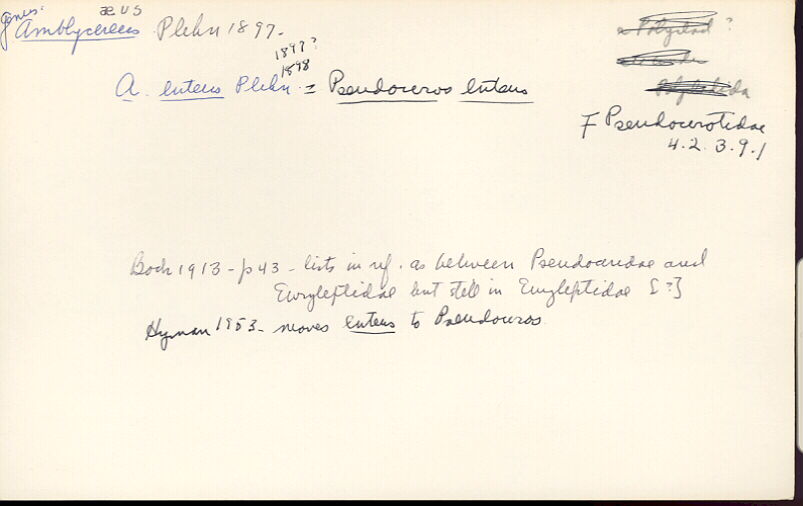 genus: æus
Amblycereus Plehn 1897.
a Polyclad ?
1897?
1898
A. luteus Plehn = Pseudoceros luteus
F Pseudocerotidae
4.2.3.9.1
Bock 1913 - p 43 - lists in ref. as between Pseudoceridae and
Euryleptidae but still in Euryleptidae [?]
Hyman 1953 - moves luteus to Pseudoceros